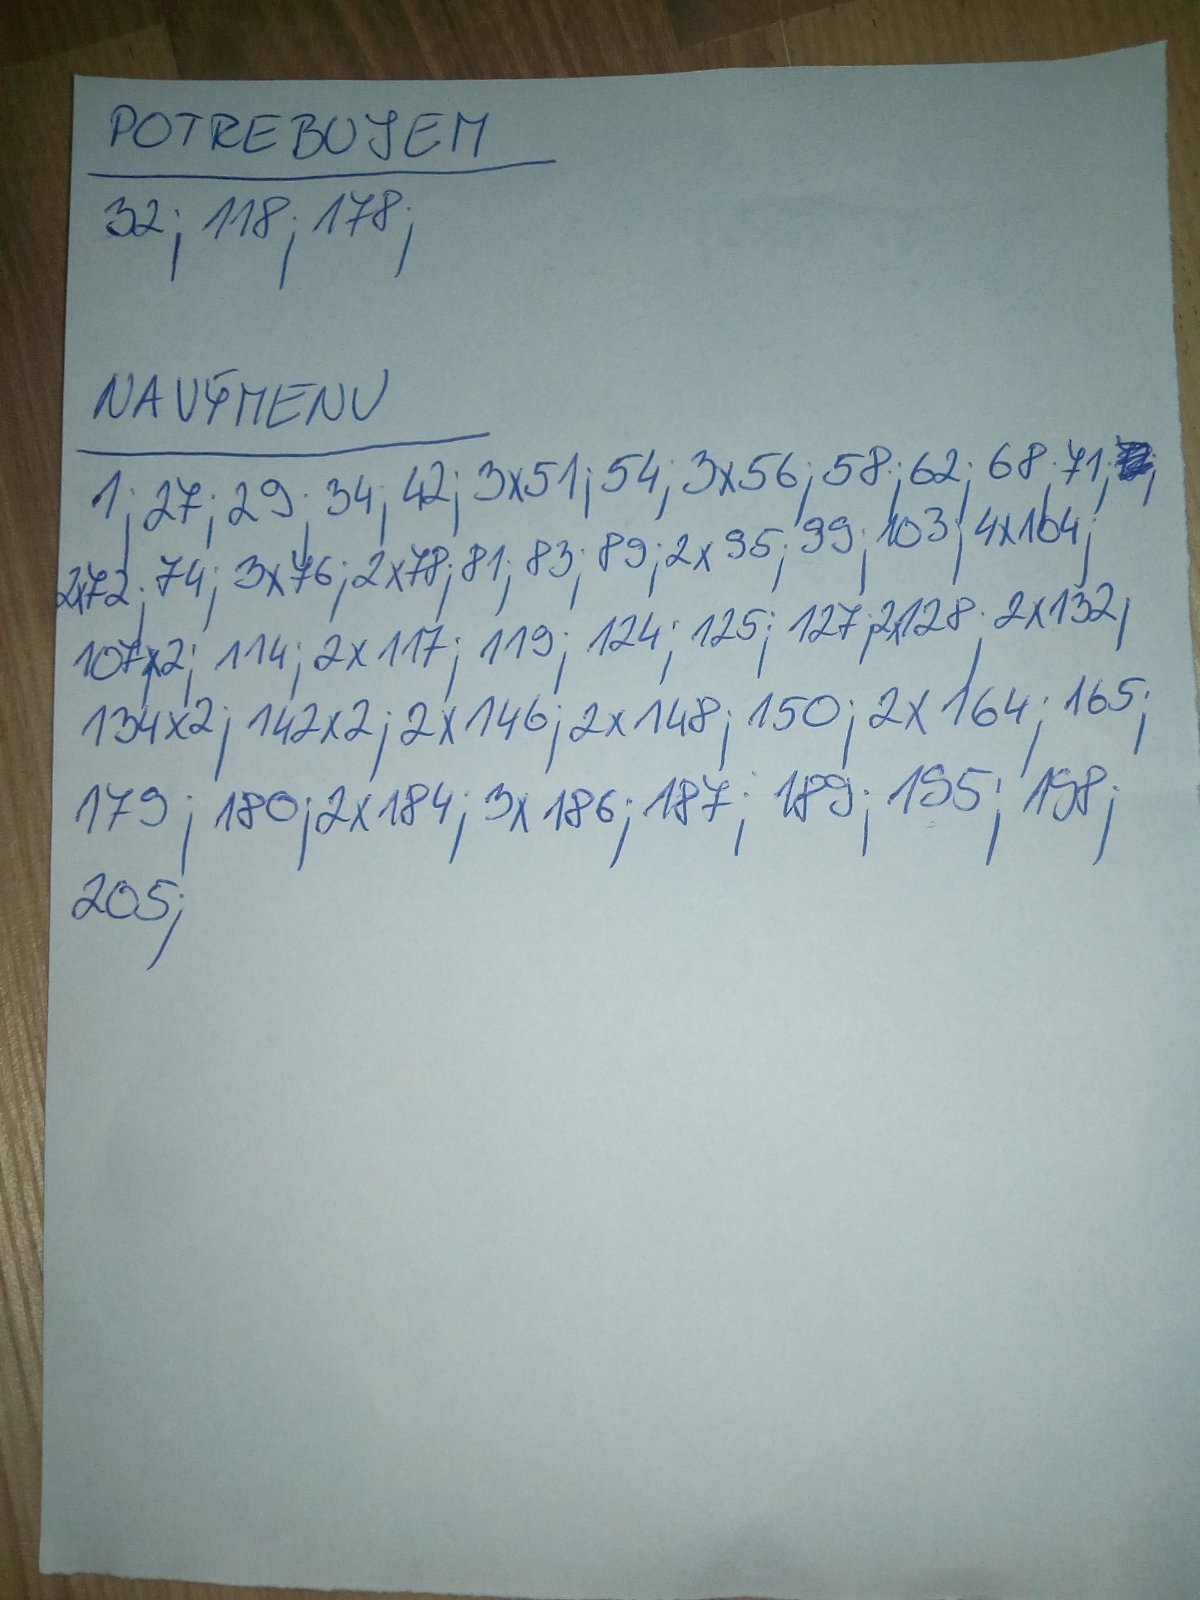 POTREBUJEM
32; 118; 178;
NA VÝMENU
1; 27; 29; 34; 42; 3x51; 54; 3x56; 58; 62; 68; 71;
2x72; 74; 3x76; 2x78; 81; 83; 89; 2x95; 99; 103; 4x104;
107x2; 114; 2x117; 119; 124; 125; 127; 2x128; 2x132;
134x2; 142x2; 2x146; 2x148; 150; 2x164; 165;
179; 180; 2x184; 3x186; 187; 189; 195; 198;
205;